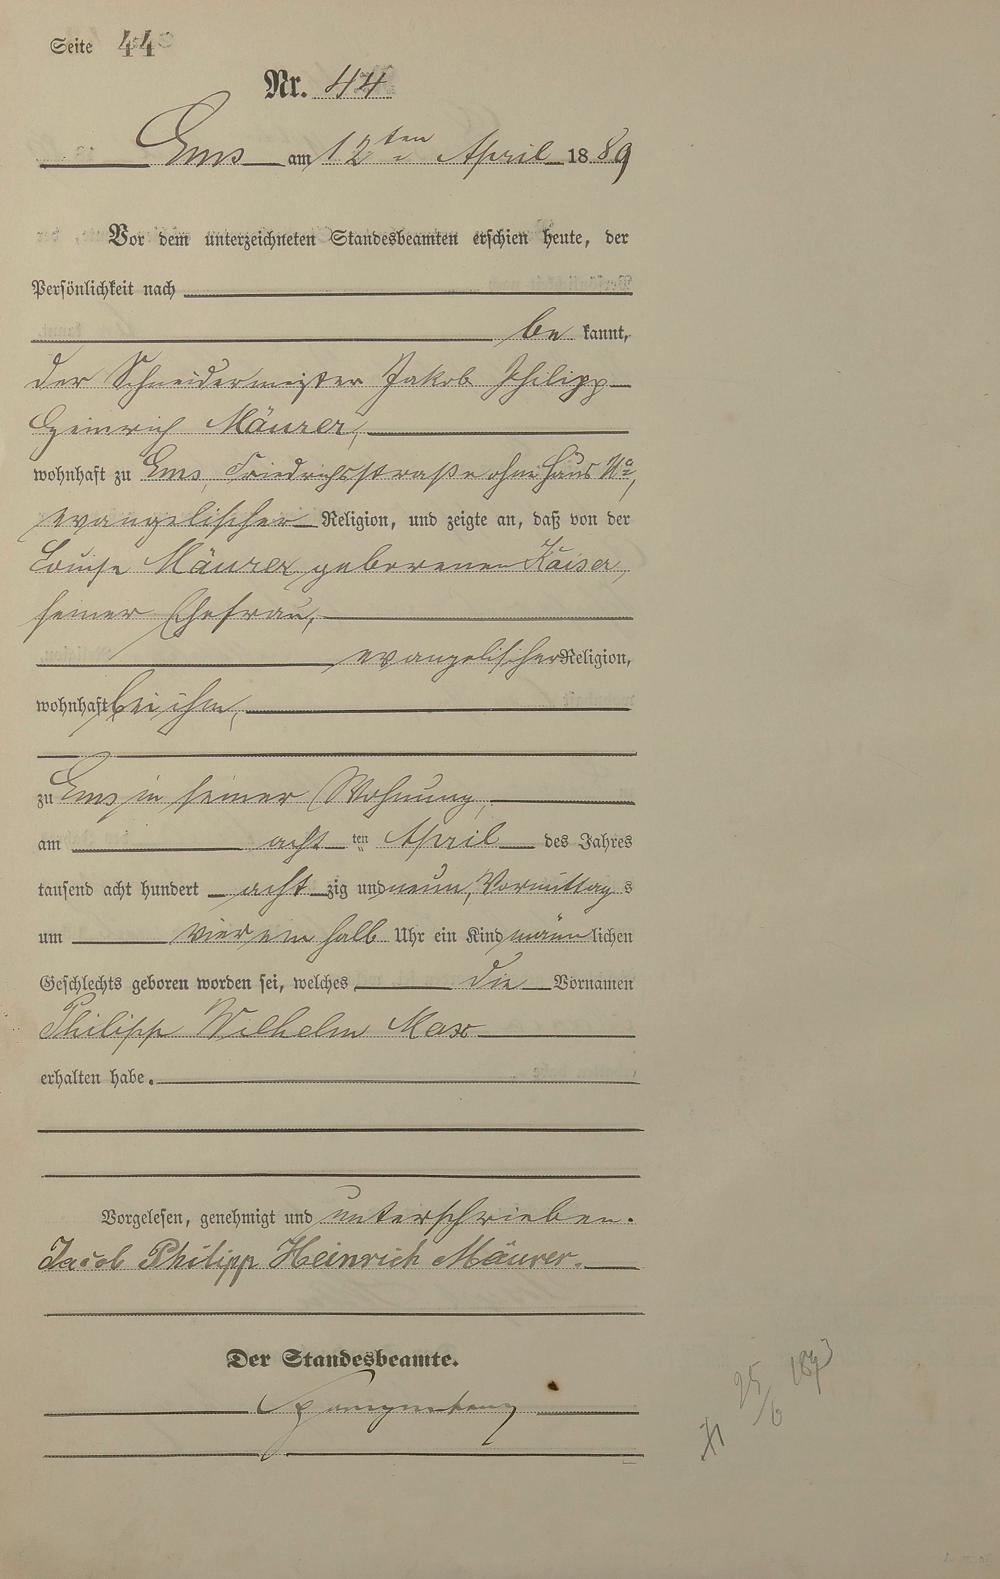 Seite 44
Nr. 44
Ems am 12ten April 1889
Vor dem unterzeichneten Standesbeamten erschien heute, der
Persönlichkeit nach
be kannt,
der Schneidermeister Jakob Philipp
Heinrich Mäurer,
wohnhaft zu Ems, Friedrichsstraße ohne Haus No,
evangelischer Religion, und zeigte an, daß von der
Louise Mäurer geborenen Kaiser,
seiner Ehefrau,
evangelischer Religion,
wohnhaft bei ihm,
zu Ems in seiner Wohnung,
am acht ten April des Jahres
tausend acht hundert acht zig und neun, Vormittag s
um vier ein halb Uhr ein Kind männ lichen
Geschlechts geboren worden sei, welches die Vornamen
Philipp Wilhelm Max
erhalten habe.
Vorgelesen, genehmigt und unterschrieben.
Jacob Philipp Heinrich Mäurer.
Der Standesbeamte.
25/6 1893